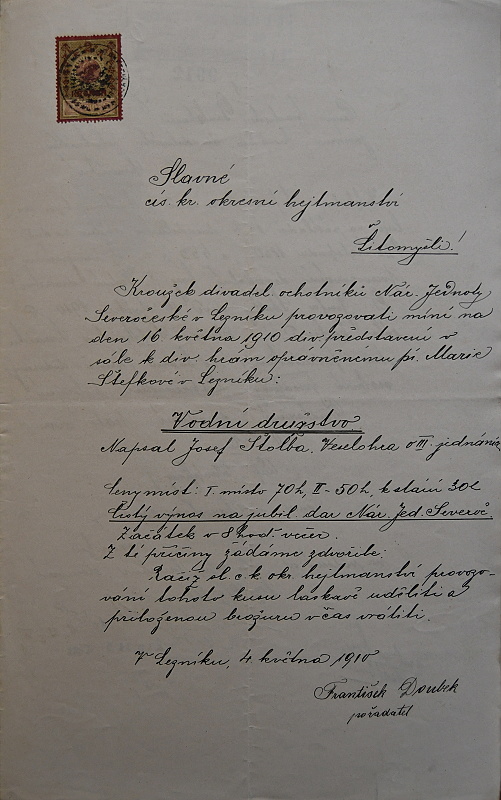 Slavné
cís. kr. okresní hejtmanství
v Litomyšli!
Kroužek divadel. ochotníků Nár. Jednoty
Severočeské v Lezníku provozovati míní na
den 16 května 1910 div. představení v
sále k div. hrám oprávněnému pí. Marie
Štefkové v Lezníku:
Vodní družstvo.
Napsal Josef Štolba, Veselohra o III. jednáních
Ceny míst: I. místo 70h, II-50h, k stání 30h
Čistý výnos na jubil. dar Nár. Jed. Severoč.
Začátek v 8 hod. večer.
Z té příčiny žádáme zdvořile:
Račiž sl. c. k. okr. hejtmanství provozo-
vání tohoto kusu laskavě uděliti a
přiloženou brožuru včas vrátiti.
V Lezníku, 4. května 1910
František Doubek
pořadatel